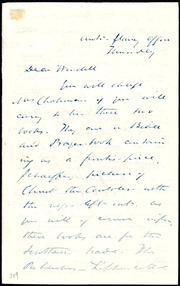 Anti-Slavery Office
Thursday
Dear Wendell
You will oblige
Mrs Chapman if you will
carry to her these two
books. They are a Bible
and Prayerbook contain-
ing as a frontis-piece,
Scheffer's picture of
Christ the Consoler with
the negro left out, as
you will of course infer,
these books are for the
Southern trade. The
Publishers